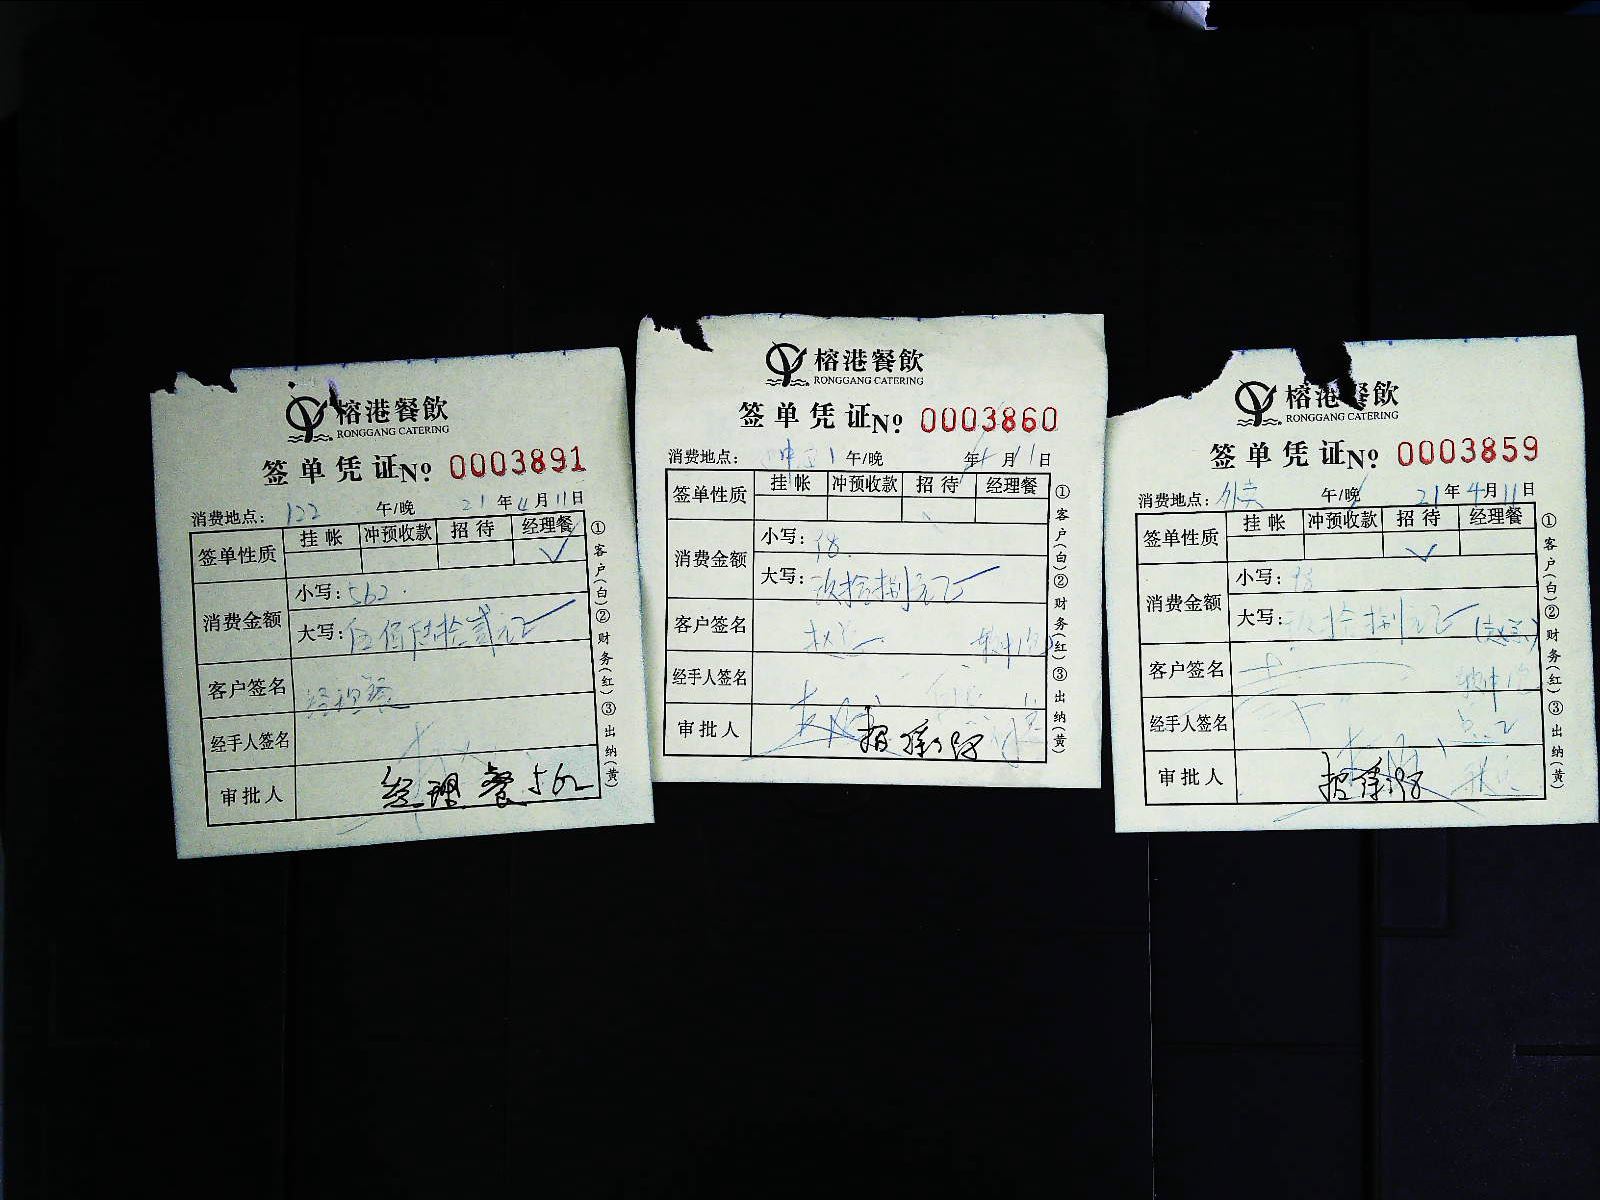 榕港餐飲
RONGGANG CATERING
签单凭证№ 0003891
消费地点: 122 午/晚 21年4月11日
签单性质 挂帐 冲预收款 招待 经理餐
消费金额
小写: 562.
大写: 伍佰陆拾贰元正
客户签名 经理餐
经手人签名
审批人 经理餐562
①客户(白)②财务(红)③出纳(黄)
榕港餐飲
RONGGANG CATERING
签单凭证№ 0003860
消费地点: 午/晚 年4月11日
签单性质 挂帐 冲预收款 招待 经理餐
消费金额
小写: 98.
大写: 玖拾捌元正
客户签名
经手人签名
审批人
①客户(白)②财务(红)③出纳(黄)
榕港餐飲
RONGGANG CATERING
签单凭证№ 0003859
消费地点: 外卖 午/晚 21年4月11日
签单性质 挂帐 冲预收款 招待 经理餐
消费金额
小写: 98
大写: 玖拾捌元正
客户签名
经手人签名
审批人
①客户(白)②财务(红)③出纳(黄)